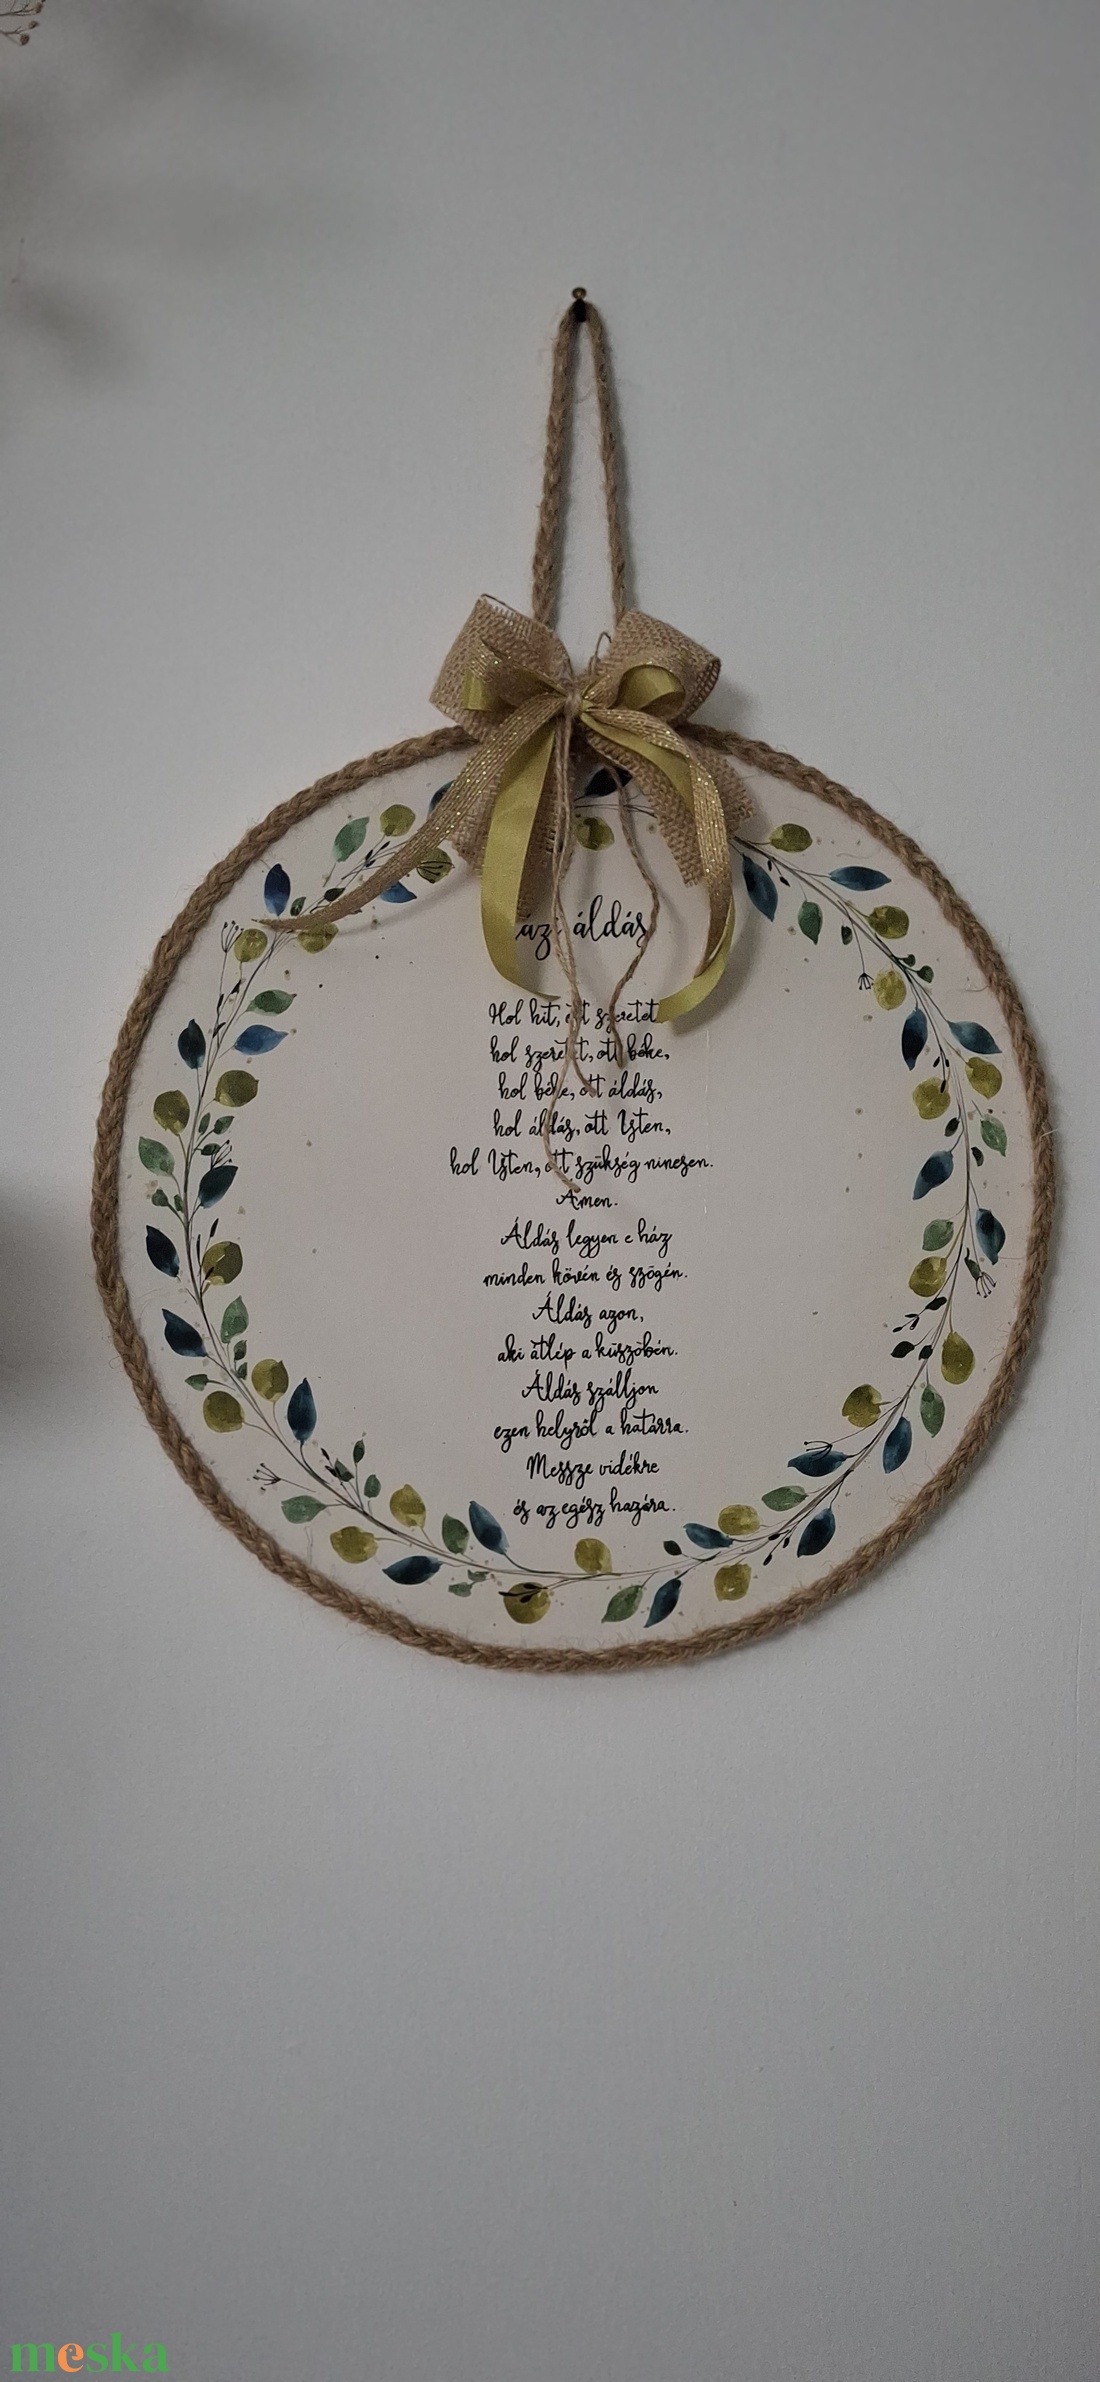 áldás
Hol hit, ott szeretet,
hol szeretet, ott béke,
hol béke, ott áldás,
hol áldás, ott Isten,
hol Isten, ott szükség nincsen.
Ámen.
Áldás legyen e ház
minden kövén és szögén.
Áldás azon,
aki átlép a küszöbén.
Áldás szálljon
ezen helyről a határra.
Messze vidékre
és az egész hazára.
meska